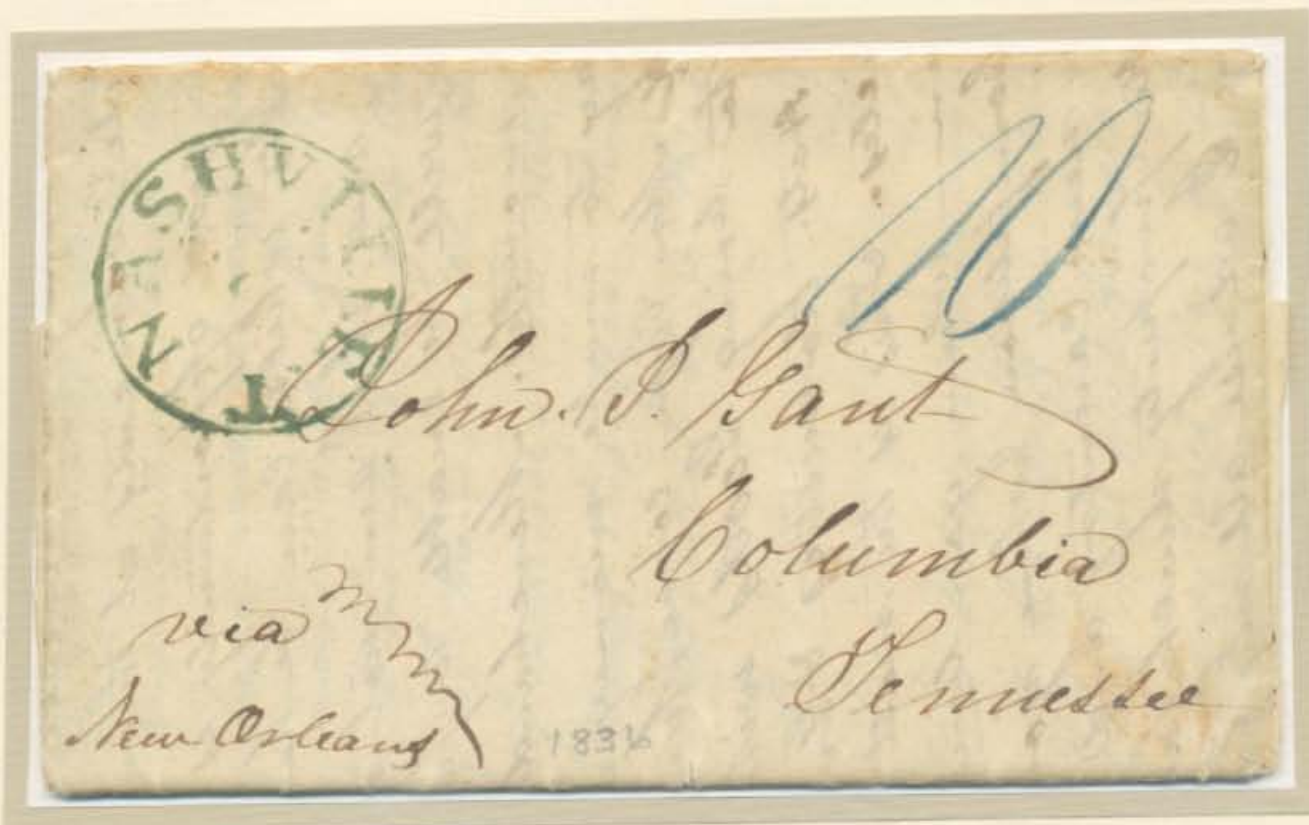 NASHVILLE T
10
John P. Gant
Columbia
Tennessee
via
New Orleans
1836